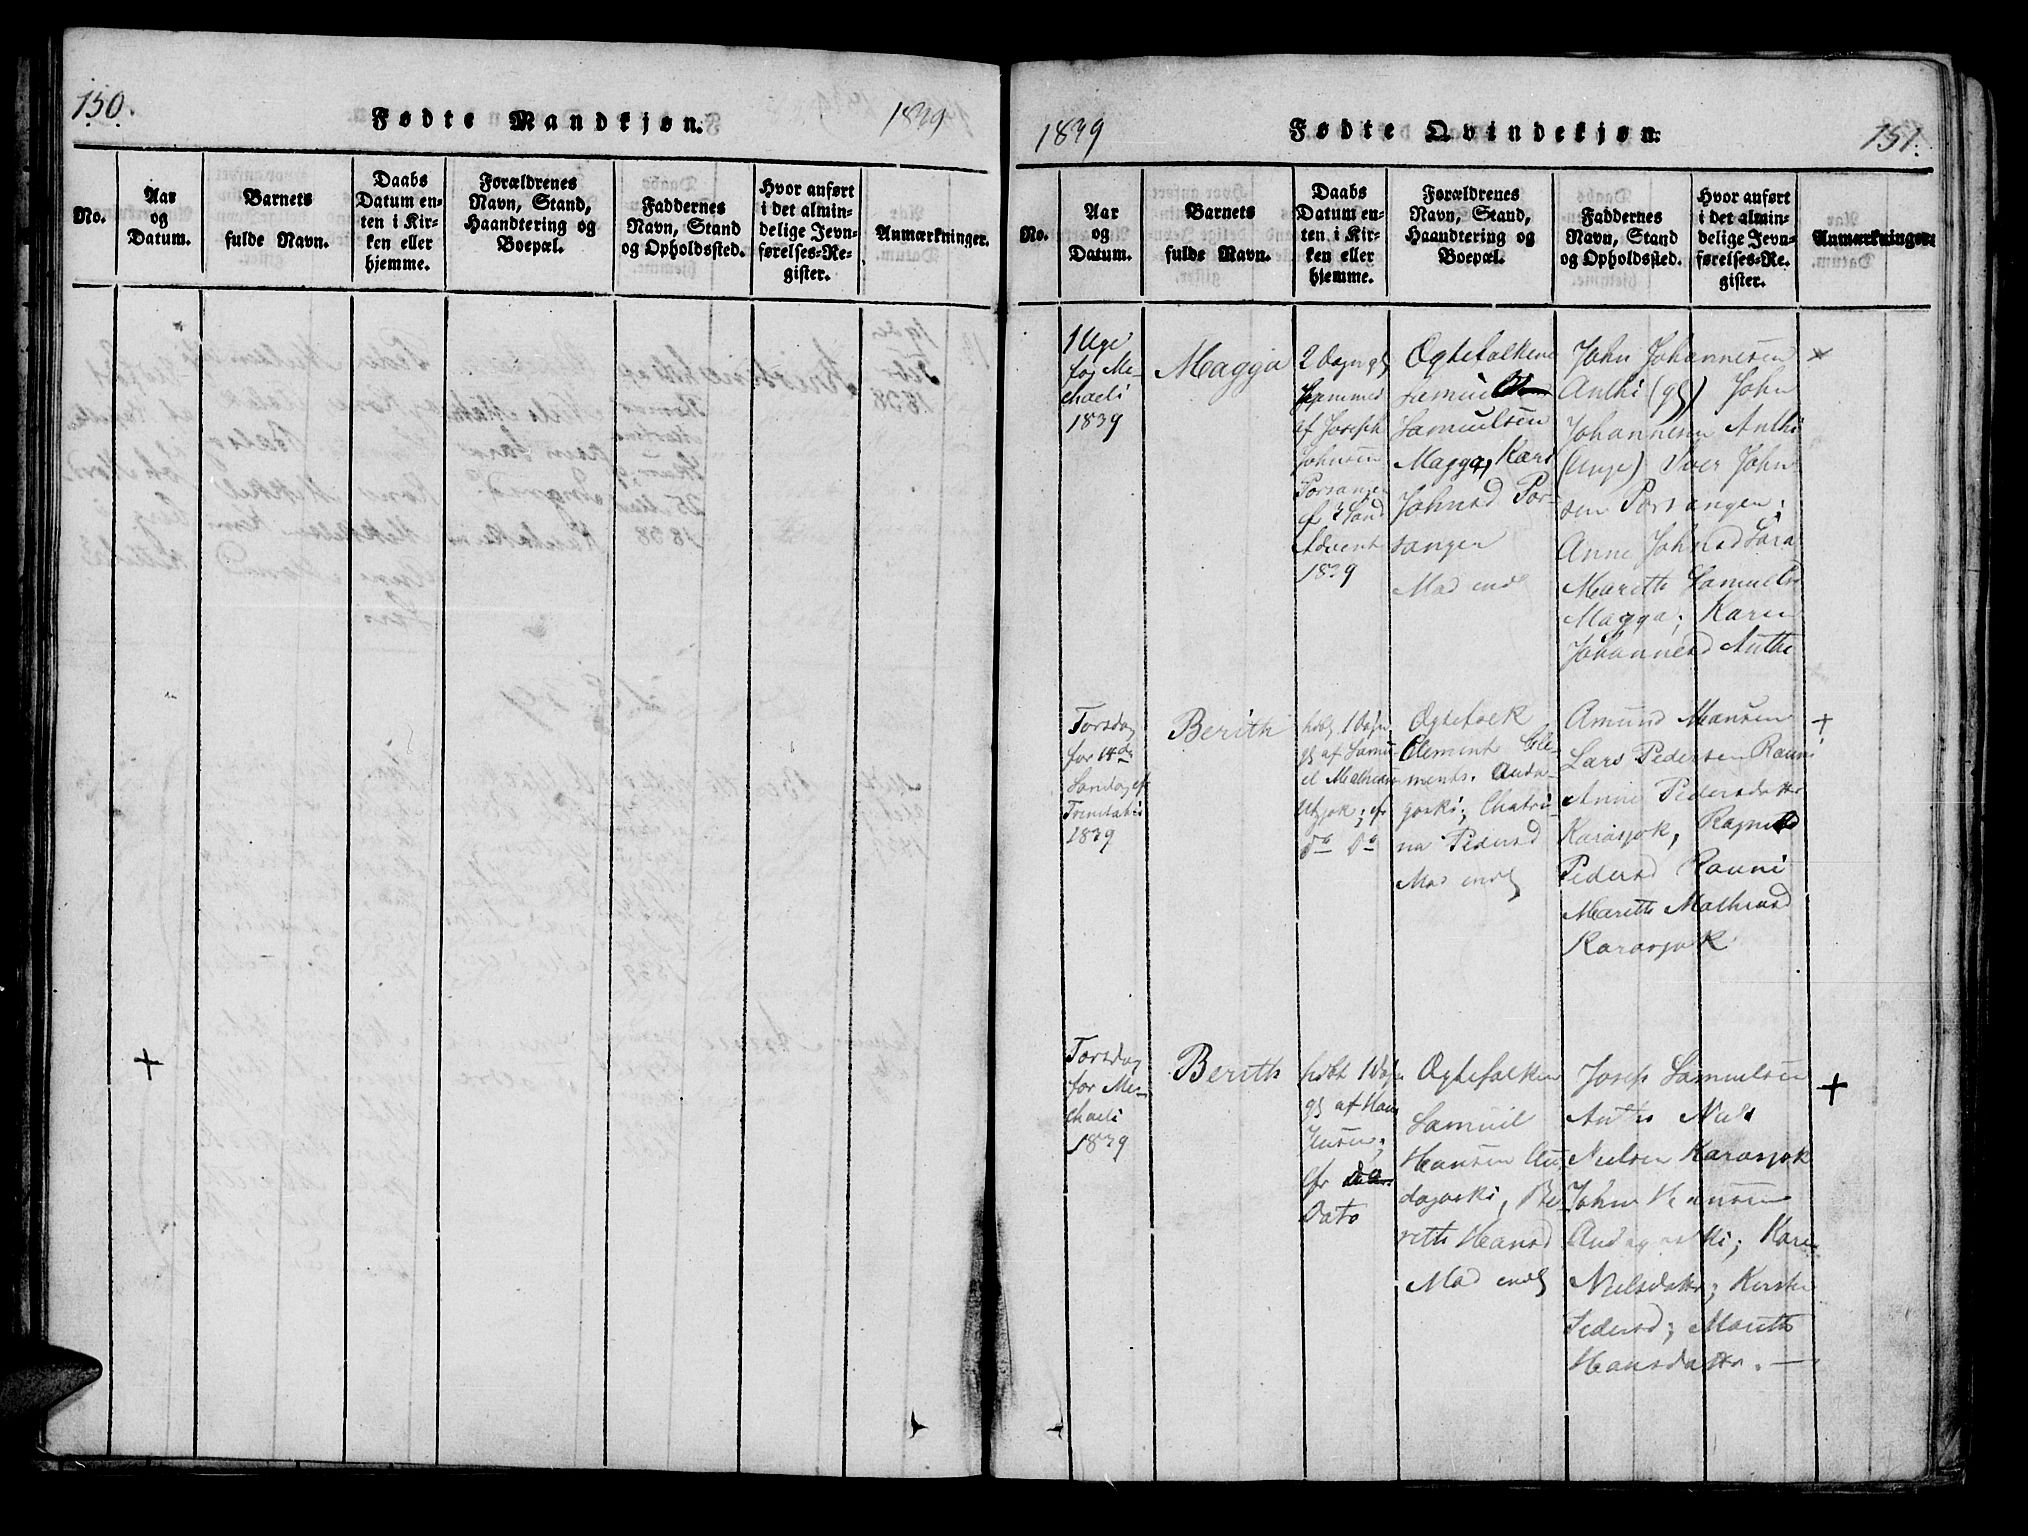 150.
Fødte Mandkjøn.
1839
No.
Aar
og
Datum.
Barnets
fulde Navn.
Daabs
Datum en-
ten i Kir-
ken eller
hjemme.
Forældrenes
Navn, Stand,
Haandtering og
Boepæl.
Faddernes
Navn, Stand
og Opholdssted.
Hvor anført
i det almin-
delige Jevn-
førelses-Re-
gister.
Anmærkninger.
1839
Fødte Qvindekjøn.
151.
No.
Aar
og
Datum.
Barnets
fulde Navn.
Daabs
Datum en-
ten i Kir-
ken eller
hjemme.
Forældrenes
Navn, Stand,
Haandtering og
Boepæl.
Faddernes
Navn, Stand
og Opholdssted.
Hvor anført
i det almin-
delige Jevn-
førelses-Re-
gister.
Anmærkninger.
1 Uge
før Me-
chaeli
1839
Magga
2 Dagn gl
hjemmed
af Joseph
Johnsen
Porsanger
ef 3 Sønd
Advent
1839
Ogtefolkene
Samuel
Samuelsen
Magga, Kars
Johnsd Por-
sanger
Mad endl
John Johannesen
Anthi (gl) John
Johannesen Anthi
(Unge) Iver John
sen Porsangen;
Anne Johnsd Sara
Mareth Samuelsd
Magga; Karen
Johannesd Anthi
×
Torsdag
før 14de
Søndag eft
Trinitatis
1839
Berith
hdbt 1 Dagn
gl af Samu-
el Mathisen
Utsjok; ef
do Do
Ogtefolk
Clement Cle-
ments. Anda-
gorski; Chatri-
na Pedersd
Mad endl
Amund Monsen
Lars Pedersen Rauni
Anne Pedersdatter
Karasjok, Ragnild
Pedersd Rauni
Mareth Mathisd
Karasjok
+
Torsdag
før Me-
chaeli
1839
Berith
hdbt 1 Dagn
gl af Hans
Jensen;
efr
Dato
Ogtefolken
Samuel
Hansen An-
dagorski, Be-
rith Hansd
Mad endl
Joseph Samuelsen
Anthi Niels
Nielsen Karasjok
John Hansen
Andagorski; Karen
Nielsdatter; Kirsten
Pedersd; Mareth
Hansdatter. —
+
+